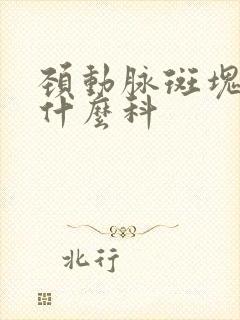 頚動脉斑塊
什麽科
北行